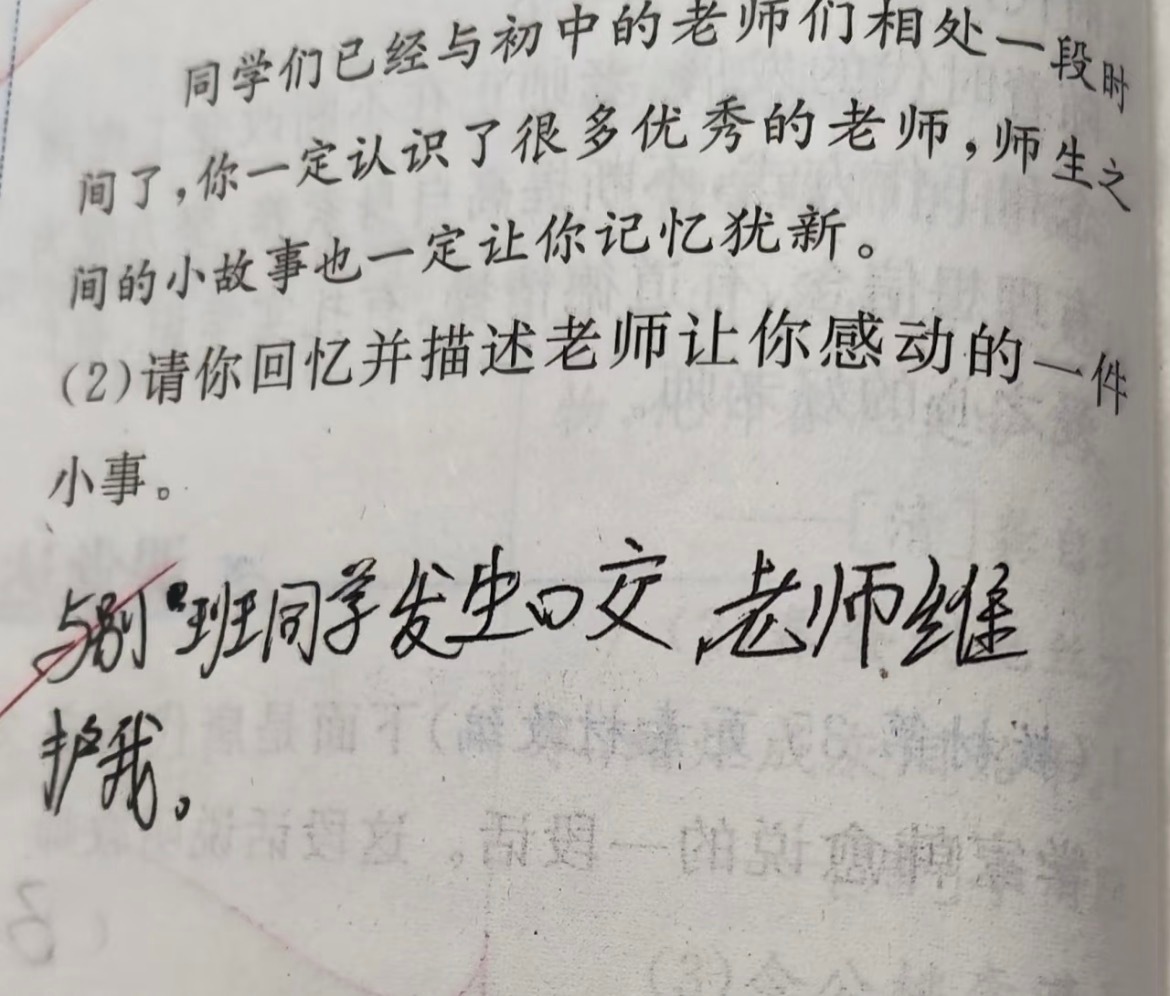 同学们已经与初中的老师们相处一段时
间了,你一定认识了很多优秀的老师,师生之
间的小故事也一定让你记忆犹新。
(2)请你回忆并描述老师让你感动的一件
小事。
与别班同学发生口交,老师维
护我。